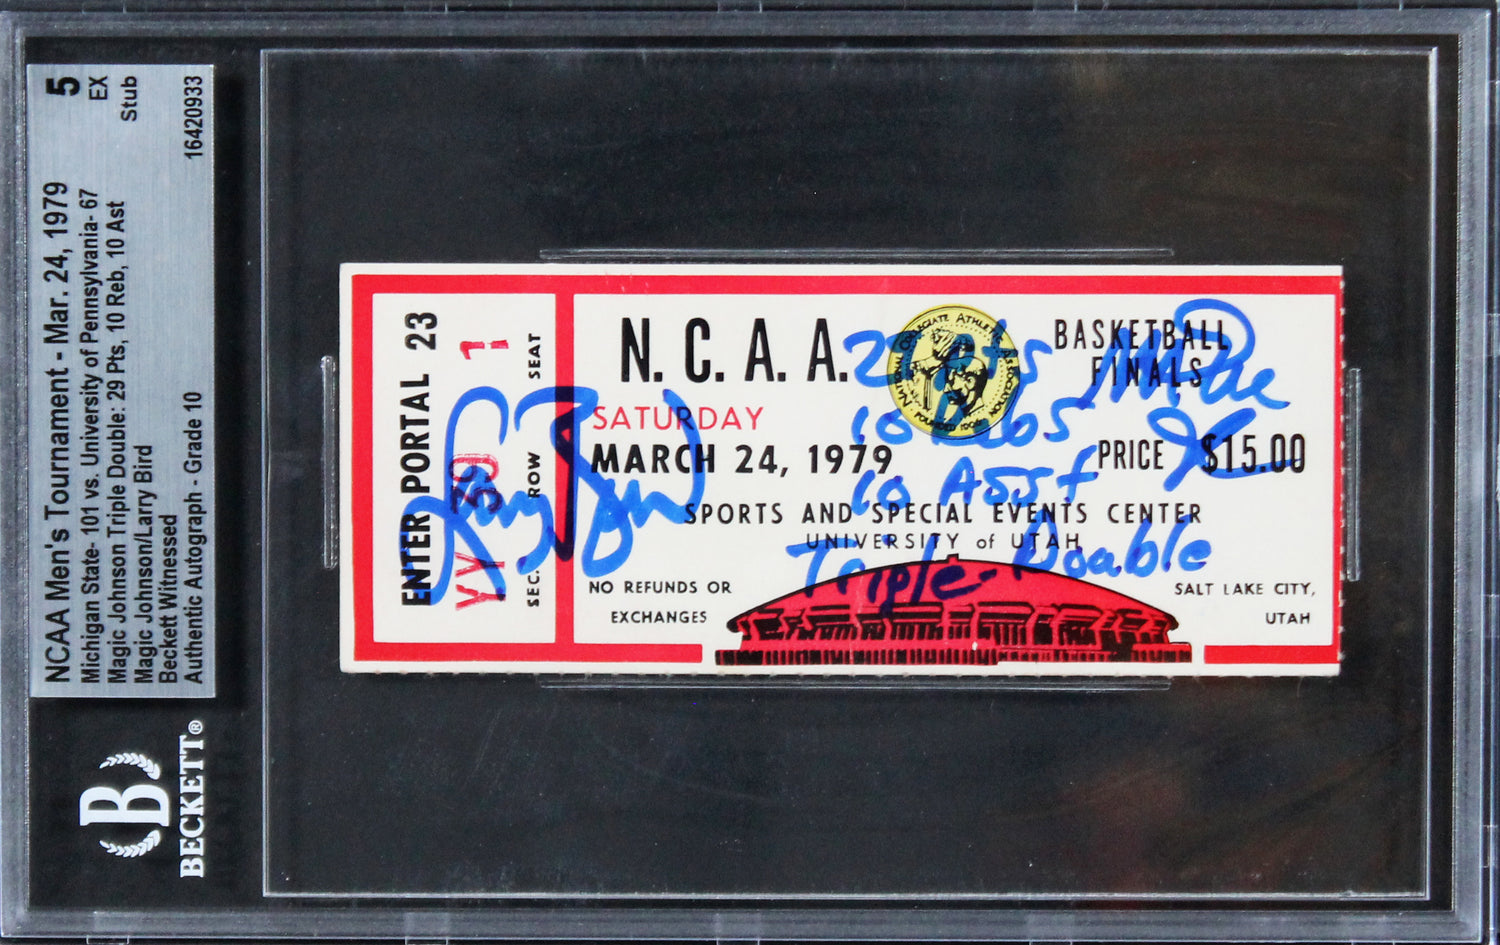 NCAA Men's Tournament - Mar. 24, 1979
Michigan State- 101 vs. University of Pennsylvania- 67
Magic Johnson Triple Double: 29 Pts, 10 Reb, 10 Ast
Magic Johnson/Larry Bird
Beckett Witnessed
Authentic Autograph - Grade 10
5
EX
Stub
16420933
B
BECKETT®
ENTER PORTAL 23
YY 39 1
SEC. ROW SEAT
N. C. A. A.
NATIONAL COLLEGIATE ATHLETIC ASSOCIATION
FOUNDED 1906
BASKETBALL
FINALS
SATURDAY
MARCH 24, 1979
PRICE $15.00
SPORTS AND SPECIAL EVENTS CENTER
UNIVERSITY of UTAH
NO REFUNDS OR
EXCHANGES
SALT LAKE CITY,
UTAH
Larry Bird
Pts
10 Rebs
10 Asst
Triple-Double